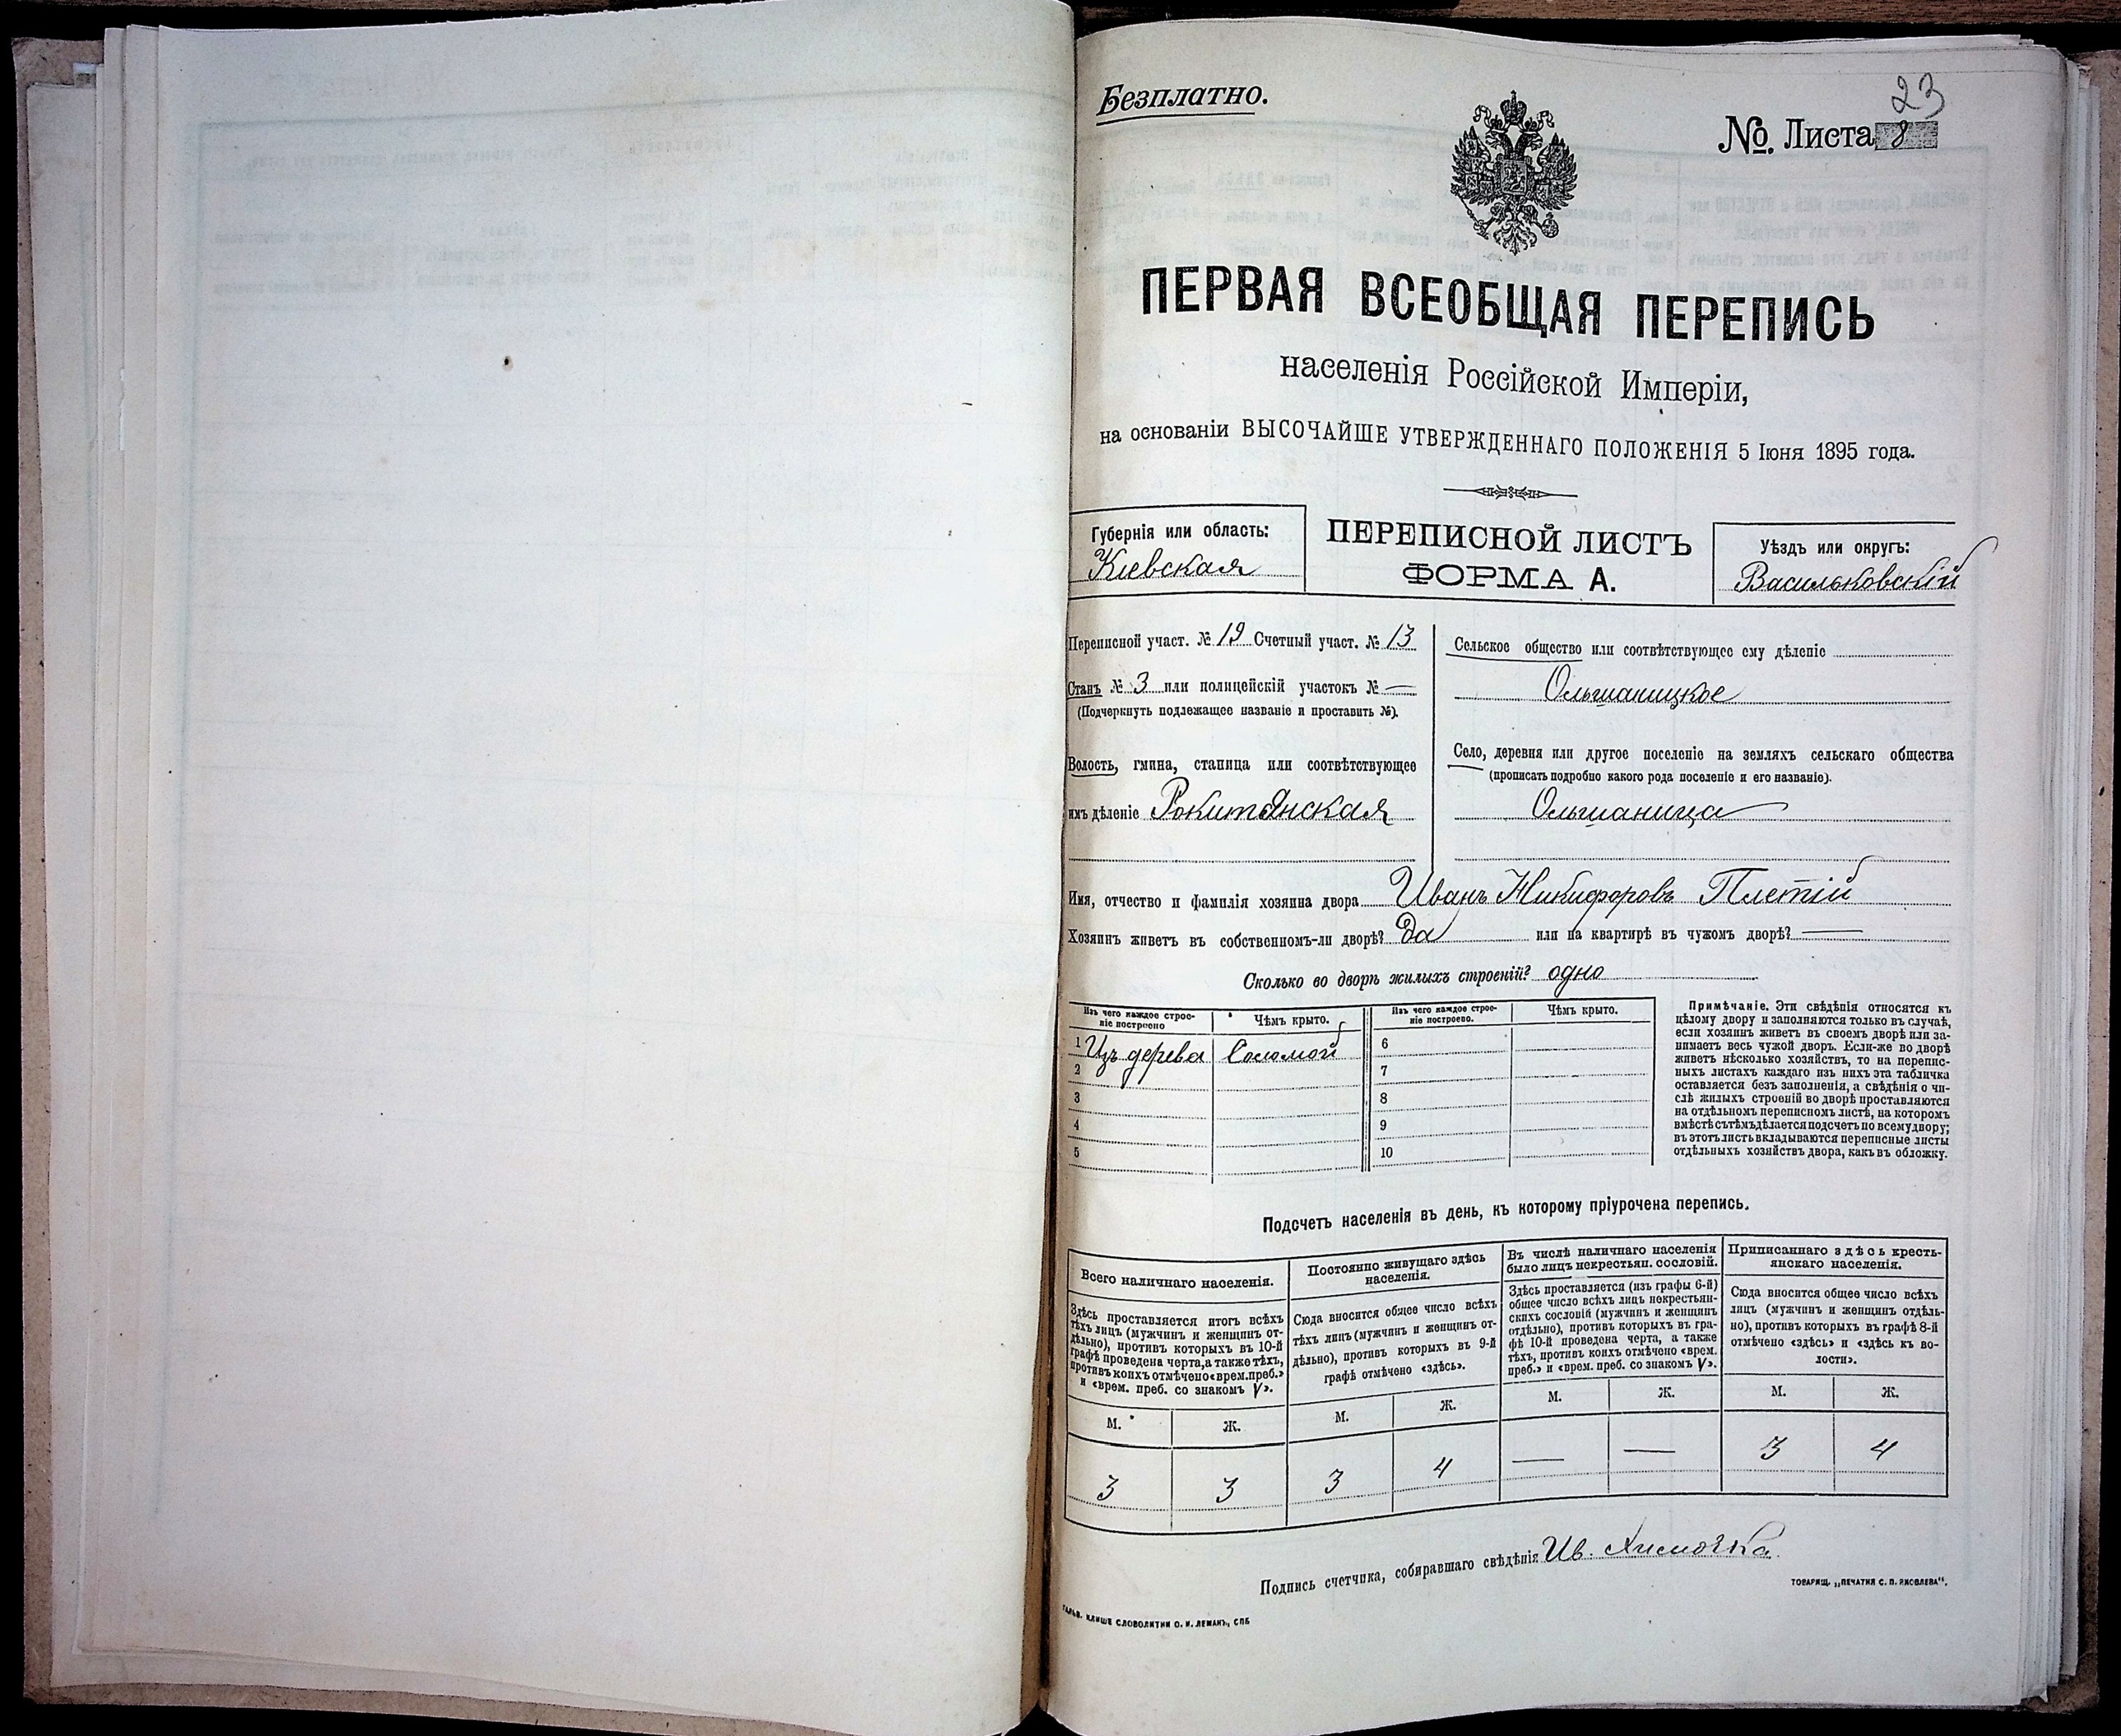 Безплатно.
23
№. Листа 8
ПЕРВАЯ ВСЕОБЩАЯ ПЕРЕПИСЬ
населенія Россійской Имперіи,
на основаніи ВЫСОЧАЙШЕ УТВЕРЖДЕННАГО ПОЛОЖЕНІЯ 5 Іюня 1895 года.
Губернія или область:
Кіевская
ПЕРЕПИСНОЙ ЛИСТЪ
ФОРМА А.
Уѣздъ или округъ:
Васильковскій
Переписной участ. № 19 Счетный участ. № 13
Станъ № 3 или полицейскій участокъ № —
(Подчеркнуть подлежащее названіе и проставить №).
Волость, гмина, станица или соотвѣтствующее
имъ дѣленіе Рокитянская
Сельское общество или соотвѣтствующее ему дѣленіе
Ольшаницкое
Село, деревня или другое поселеніе на земляхъ сельскаго общества
(прописать подробно какого рода поселеніе и его названіе).
Ольшаница
Имя, отчество и фамилія хозяина двора Иванъ Никифоровъ Плетій
Хозяинъ живетъ въ собственномъ-ли дворѣ? Да или на квартирѣ въ чужомъ дворѣ? —
Сколько во дворѣ жилыхъ строеній? одно
Изъ чего каждое строе-
ніе построено
Чѣмъ крыто.
Изъ чего каждое строе-
ніе построено.
Чѣмъ крыто.
1 Изъ дерева Соломой 6
2 7
3 8
4 9
5 10
Примѣчаніе. Эти свѣдѣнія относятся къ
цѣлому двору и заполняются только въ случаѣ,
если хозяинъ живетъ въ своемъ дворѣ или за-
нимаетъ весь чужой дворъ. Если-же во дворѣ
живетъ нѣсколько хозяйствъ, то на перепис-
ныхъ листахъ каждаго изъ нихъ эта табличка
оставляется безъ заполненія, а свѣдѣнія о чи-
слѣ жилыхъ строеній во дворѣ проставляются
на отдѣльномъ переписномъ листѣ, на которомъ
вмѣстѣ съ тѣмъ дѣлается подсчетъ по всему двору;
въ этотъ листъ вкладываются переписные листы
отдѣльныхъ хозяйствъ двора, какъ въ обложку.
Подсчетъ населенія въ день, къ которому пріурочена перепись.
Всего наличнаго населенія.
Здѣсь проставляется итогъ всѣхъ
тѣхъ лицъ (мужчинъ и женщинъ от-
дѣльно), противъ которыхъ въ 10-й
графѣ проведена черта, а также тѣхъ,
противъ коихъ отмѣчено «врем. преб.»
и «врем. преб. со знакомъ V».
Постоянно живущаго здѣсь
населенія.
Сюда вносится общее число всѣхъ
тѣхъ лицъ (мужчинъ и женщинъ от-
дѣльно), противъ которыхъ въ 9-й
графѣ отмѣчено «здѣсь».
Въ числѣ наличнаго населенія
было лицъ некрестьян. сословій.
Здѣсь проставляется (изъ графы 6-й)
общее число всѣхъ лицъ некрестьян-
скихъ сословій (мужчинъ и женщинъ
отдѣльно), противъ которыхъ въ гра-
фѣ 10-й проведена черта, а также
тѣхъ, противъ коихъ отмѣчено «врем.
преб.» и «врем. преб. со знакомъ V».
Приписаннаго здѣсь кресть-
янскаго населенія.
Сюда вносится общее число всѣхъ
лицъ (мужчинъ и женщинъ отдѣль-
но), противъ которыхъ въ графѣ 8-й
отмѣчено «здѣсь» и «здѣсь къ во-
лости».
М. Ж. М. Ж. М. Ж. М. Ж.
3 3 3 4 — — 3 4
Подпись счетчика, собиравшаго свѣдѣнія Ив.
ТОВАРИЩ. „ПЕЧАТНЯ С. П. ЯКОВЛЕВА“.
ГАЛЬВ. КЛИШЕ СЛОВОЛИТНИ О. И. ЛЕМАНЪ, СПБ